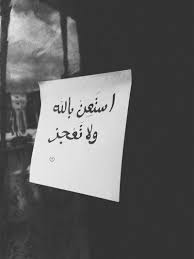 استَعِن بالله
ولا تَعجز
♡